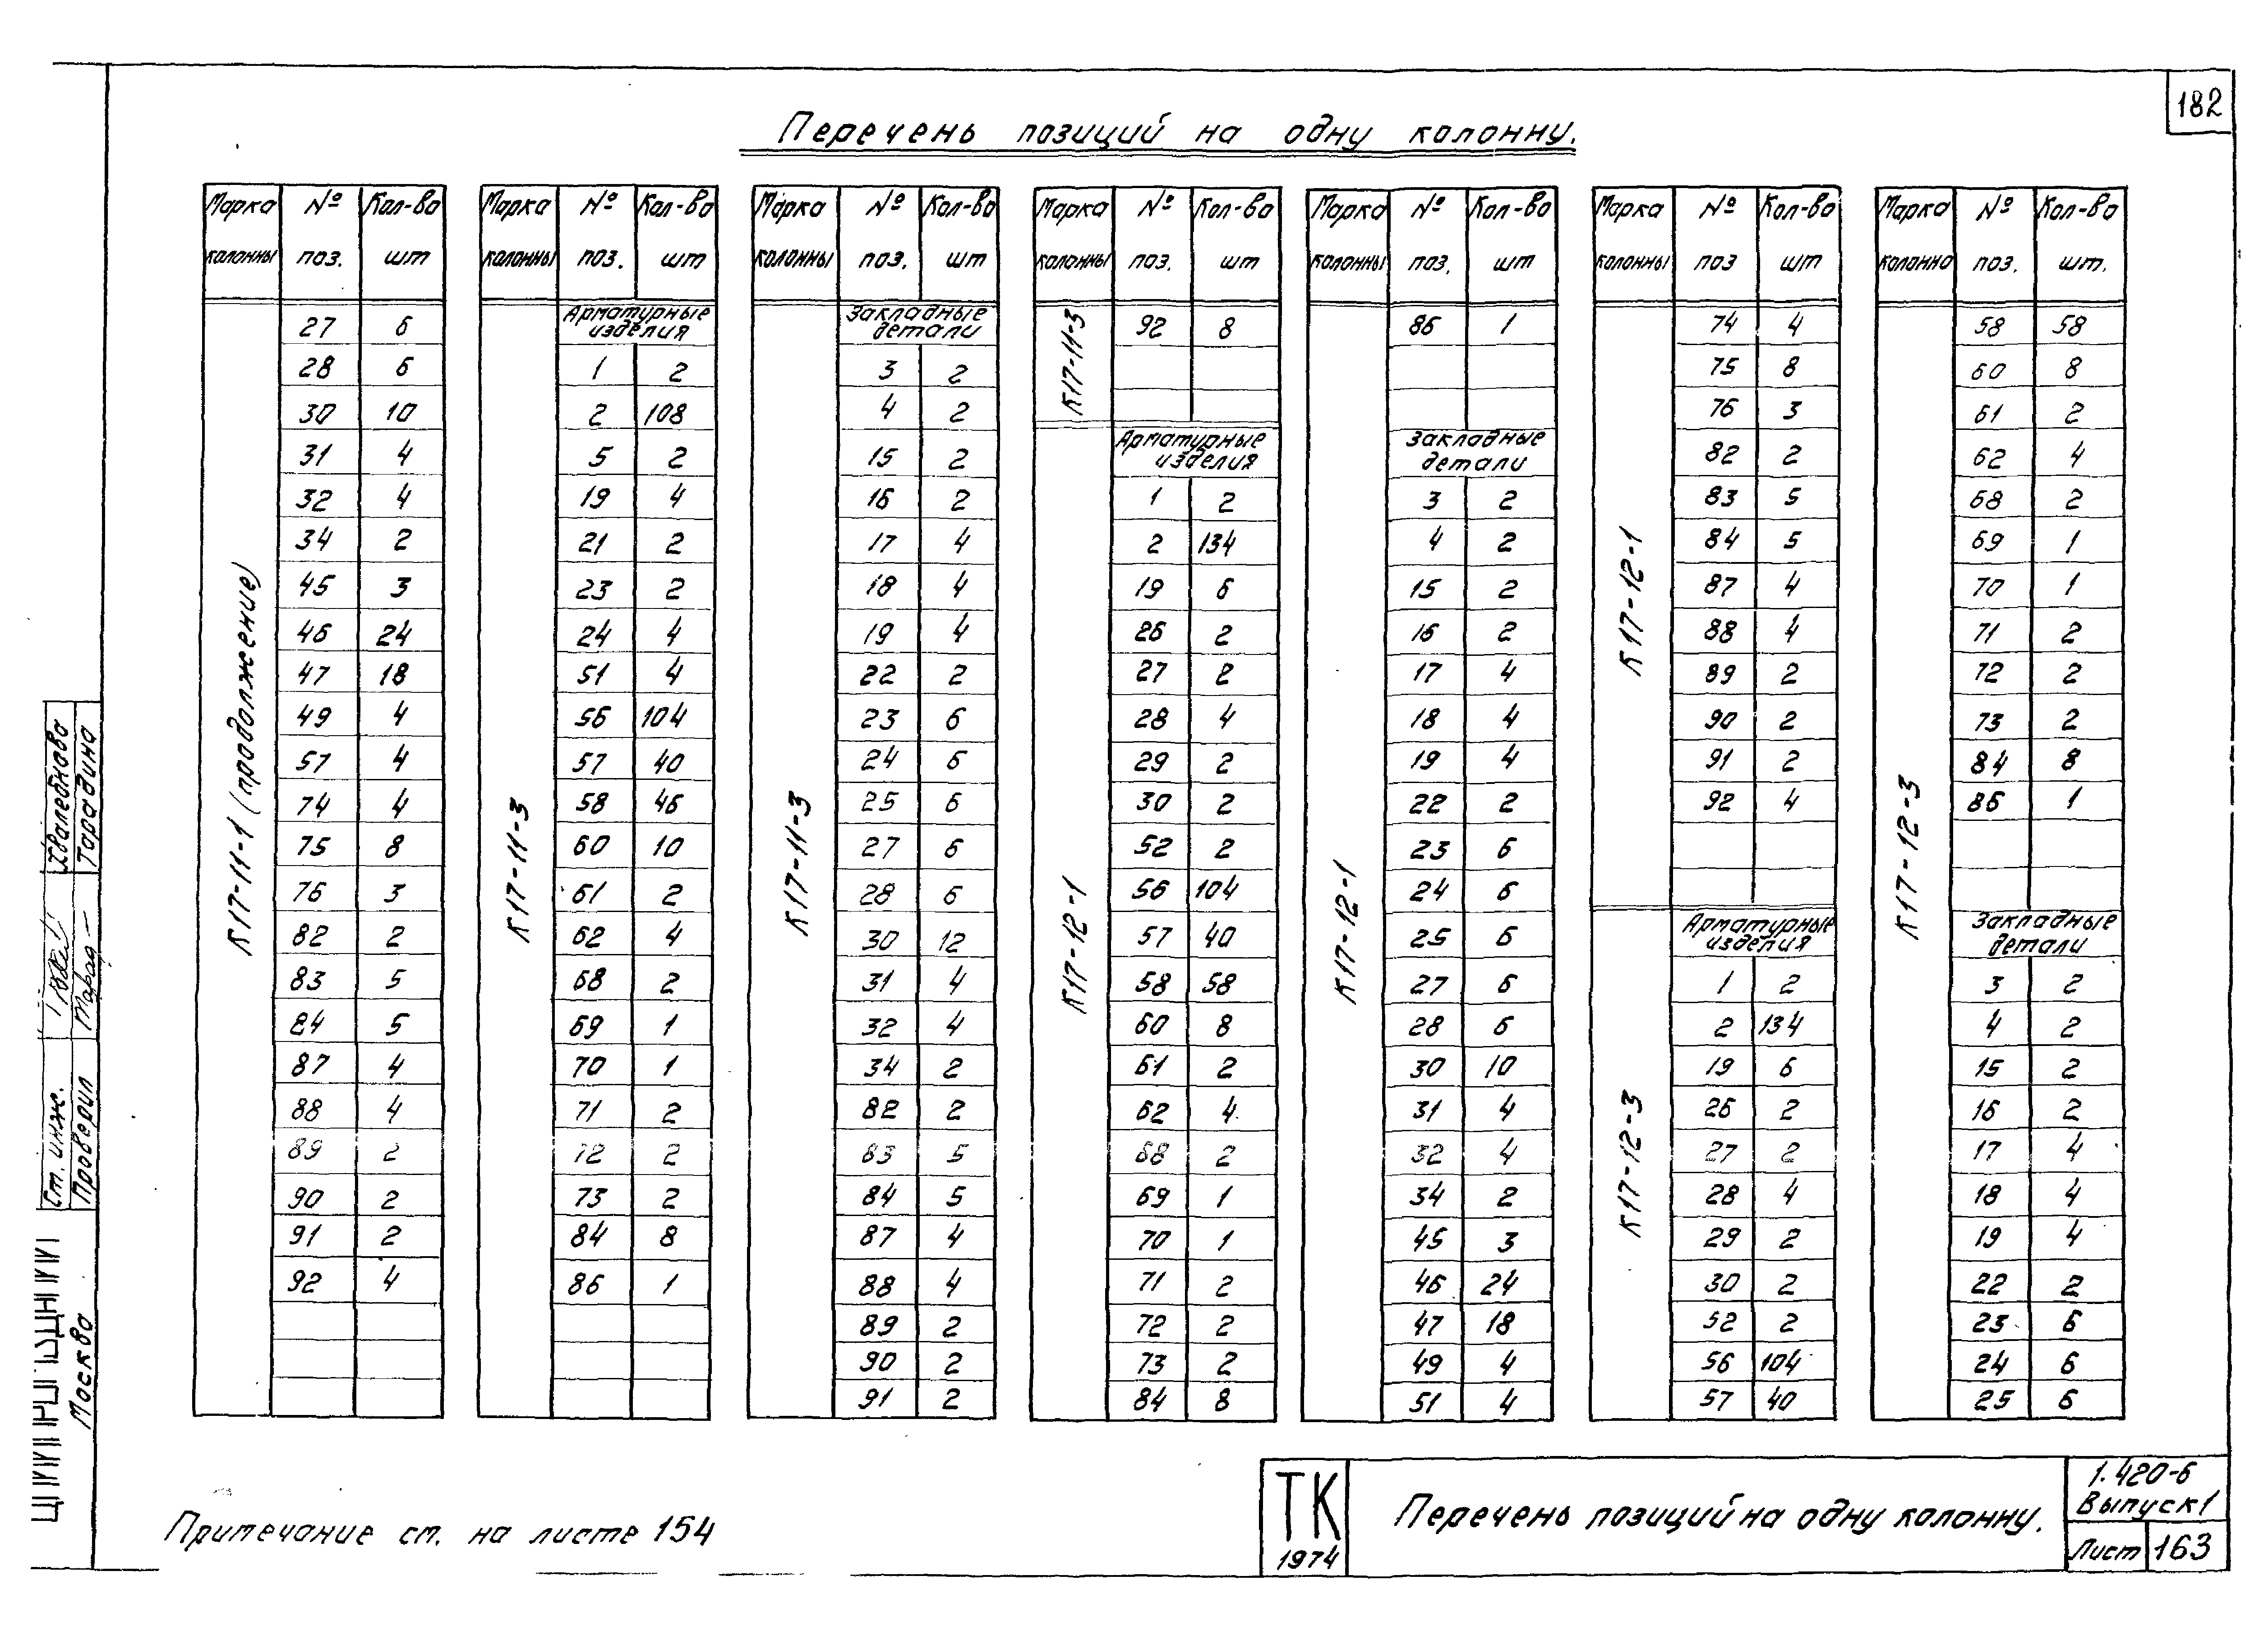 182
Перечень позиций на одну колонну.
Марка колонны № поз. Кол-во шт
К17-11-1 (продолжение)
27 6
28 6
30 10
31 4
32 4
34 2
45 3
46 24
47 18
49 4
57 4
74 4
75 8
76 3
82 2
83 5
84 5
87 4
88 4
89 2
90 2
91 2
92 4
Марка колонны № поз. Кол-во шт
К17-11-3
Арматурные изделия
1 2
2 108
5 2
19 4
21 2
23 2
24 4
51 4
56 104
57 40
58 46
60 10
61 2
62 4
68 2
69 1
70 1
71 2
72 2
73 2
84 8
86 1
Марка колонны № поз. Кол-во шт
К17-11-3
Закладные детали
3 2
4 2
15 2
16 2
17 4
18 4
19 4
22 2
23 6
24 6
25 6
27 6
28 6
30 12
31 4
32 4
34 2
82 2
83 5
84 5
87 4
88 4
89 2
90 2
91 2
Марка колонны № поз. Кол-во шт
К17-11-3
92 8
К17-12-1
Арматурные изделия
1 2
2 134
19 6
26 2
27 2
28 4
29 2
30 2
52 2
56 104
57 40
58 58
60 8
61 2
62 4
68 2
69 1
70 1
71 2
72 2
73 2
84 8
Марка колонны № поз. Кол-во шт
К17-12-1
86 1
Закладные детали
3 2
4 2
15 2
16 2
17 4
18 4
19 4
22 2
23 6
24 6
25 6
27 6
28 6
30 10
31 4
32 4
34 2
45 3
46 24
47 18
49 4
51 4
Марка колонны № поз Кол-во шт
К17-12-1
74 4
75 8
76 3
82 2
83 5
84 5
87 4
88 4
89 2
90 2
91 2
92 4
К17-12-3
Арматурные изделия
1 2
2 134
19 6
26 2
27 2
28 4
29 2
30 2
52 2
56 104
57 40
Марка колонна № поз. Кол-во шт.
К17-12-3
58 58
60 8
61 2
62 4
68 2
69 1
70 1
71 2
72 2
73 2
84 8
86 1
Закладные детали
3 2
4 2
15 2
16 2
17 4
18 4
19 4
22 2
23 6
24 6
25 6
Ст. инж. Хвалебнова
Проверил Тарадина
Москва
Примечание ст. на листе 154
ТК
1974
Перечень позиций на одну колонну.
1.420-6
Выпуск 1
Лист 163